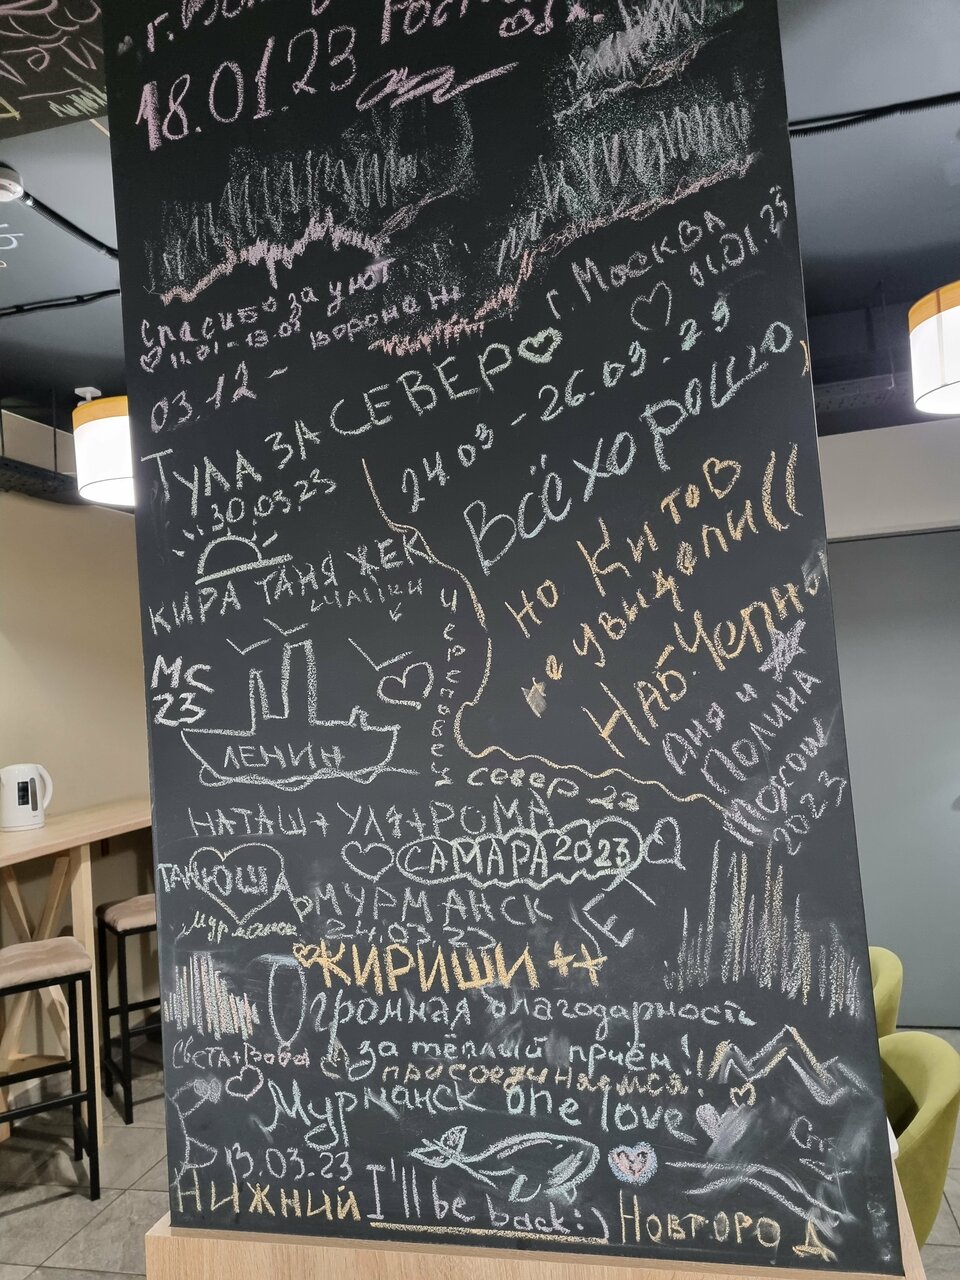 18.01.23
Спасибо за уют
11.01 - 13.01 Воронеж
г. Москва
31.01.23
03.12 -
ТУЛА ЗА СЕВЕР
30.03.23
24.03 - 26.03.23
Всё хорошо
но Китов
не увидели((
Наб. Челны
КИРА ТАНЯ ЖЕК
чайки
МС
23
ЛЕНИН
Череповец
север 23
Аня и
Полина
2023
НАТАШ+ УЛЯ+РОМА
САМАРА 2023
ТАНЮША
МУРМАНСК
24.03.23
КИРИШИ ++
Огромная благодарность
за тёплый приём!
Света+Вова
присоединяемся!!
Мурманск one love
13.03.23
НИЖНИЙ
I'll be back:)
НОВГОРОД